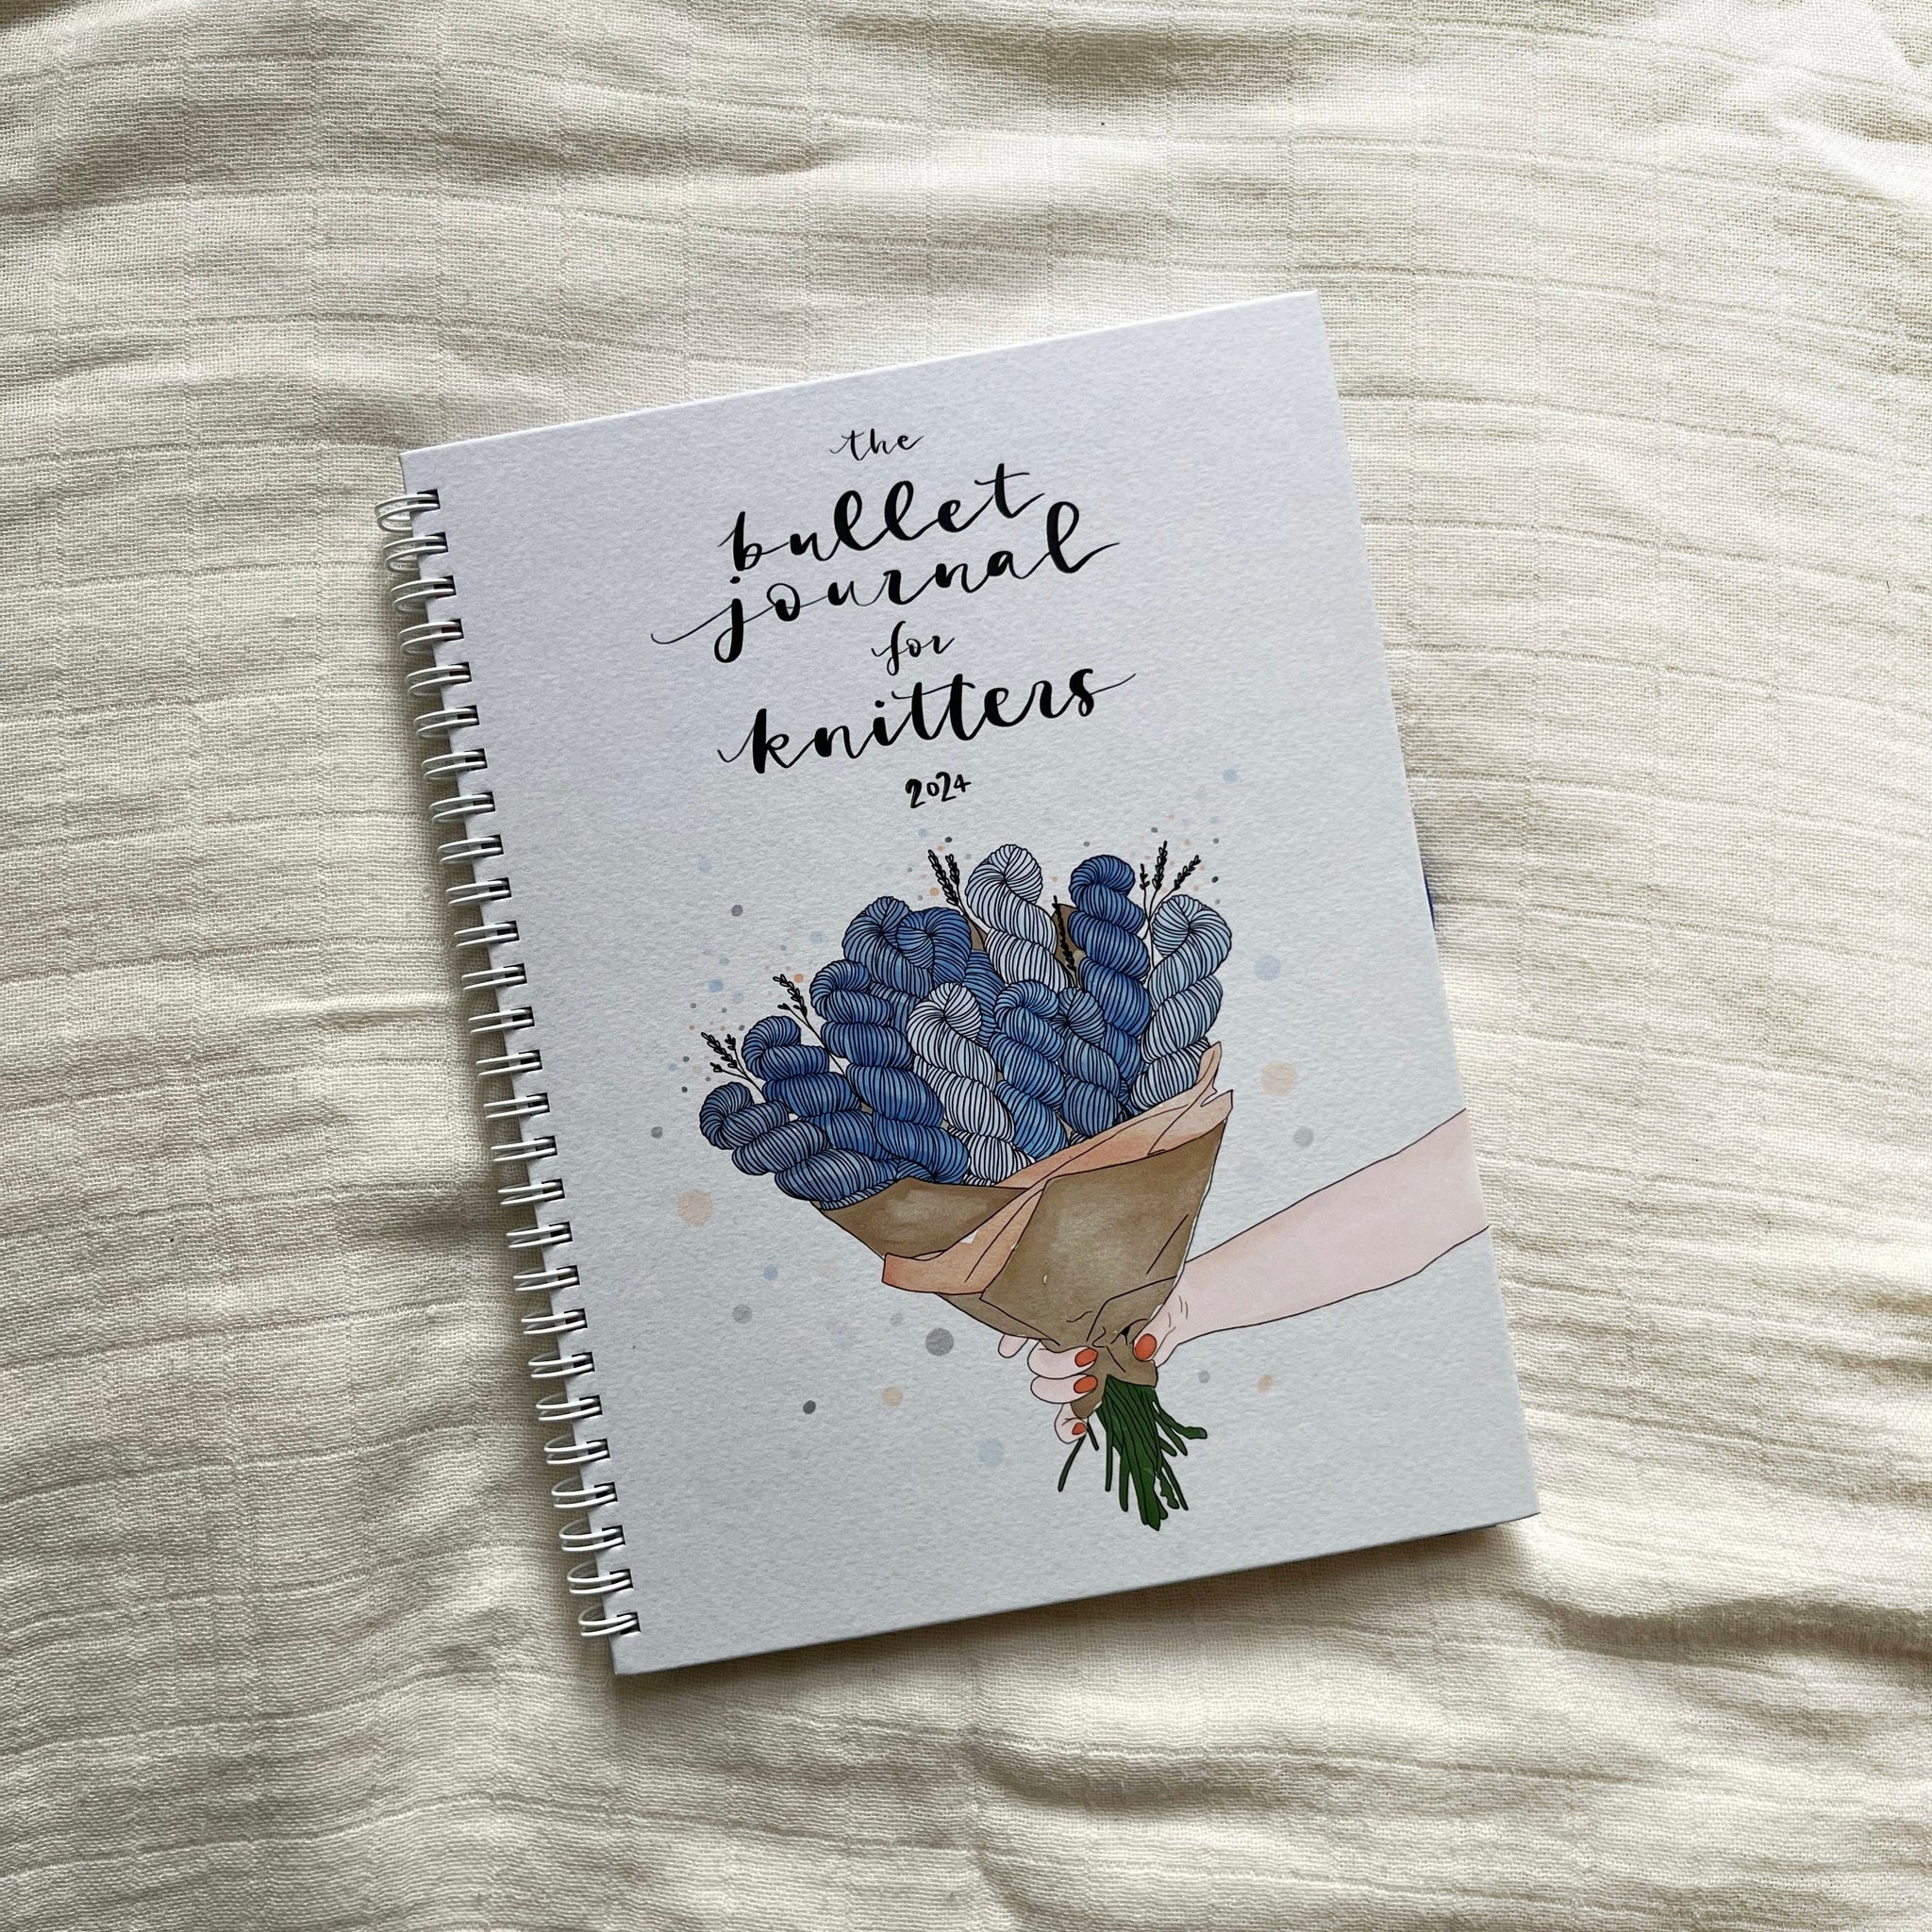 the
bullet
journal
for
knitters
2024